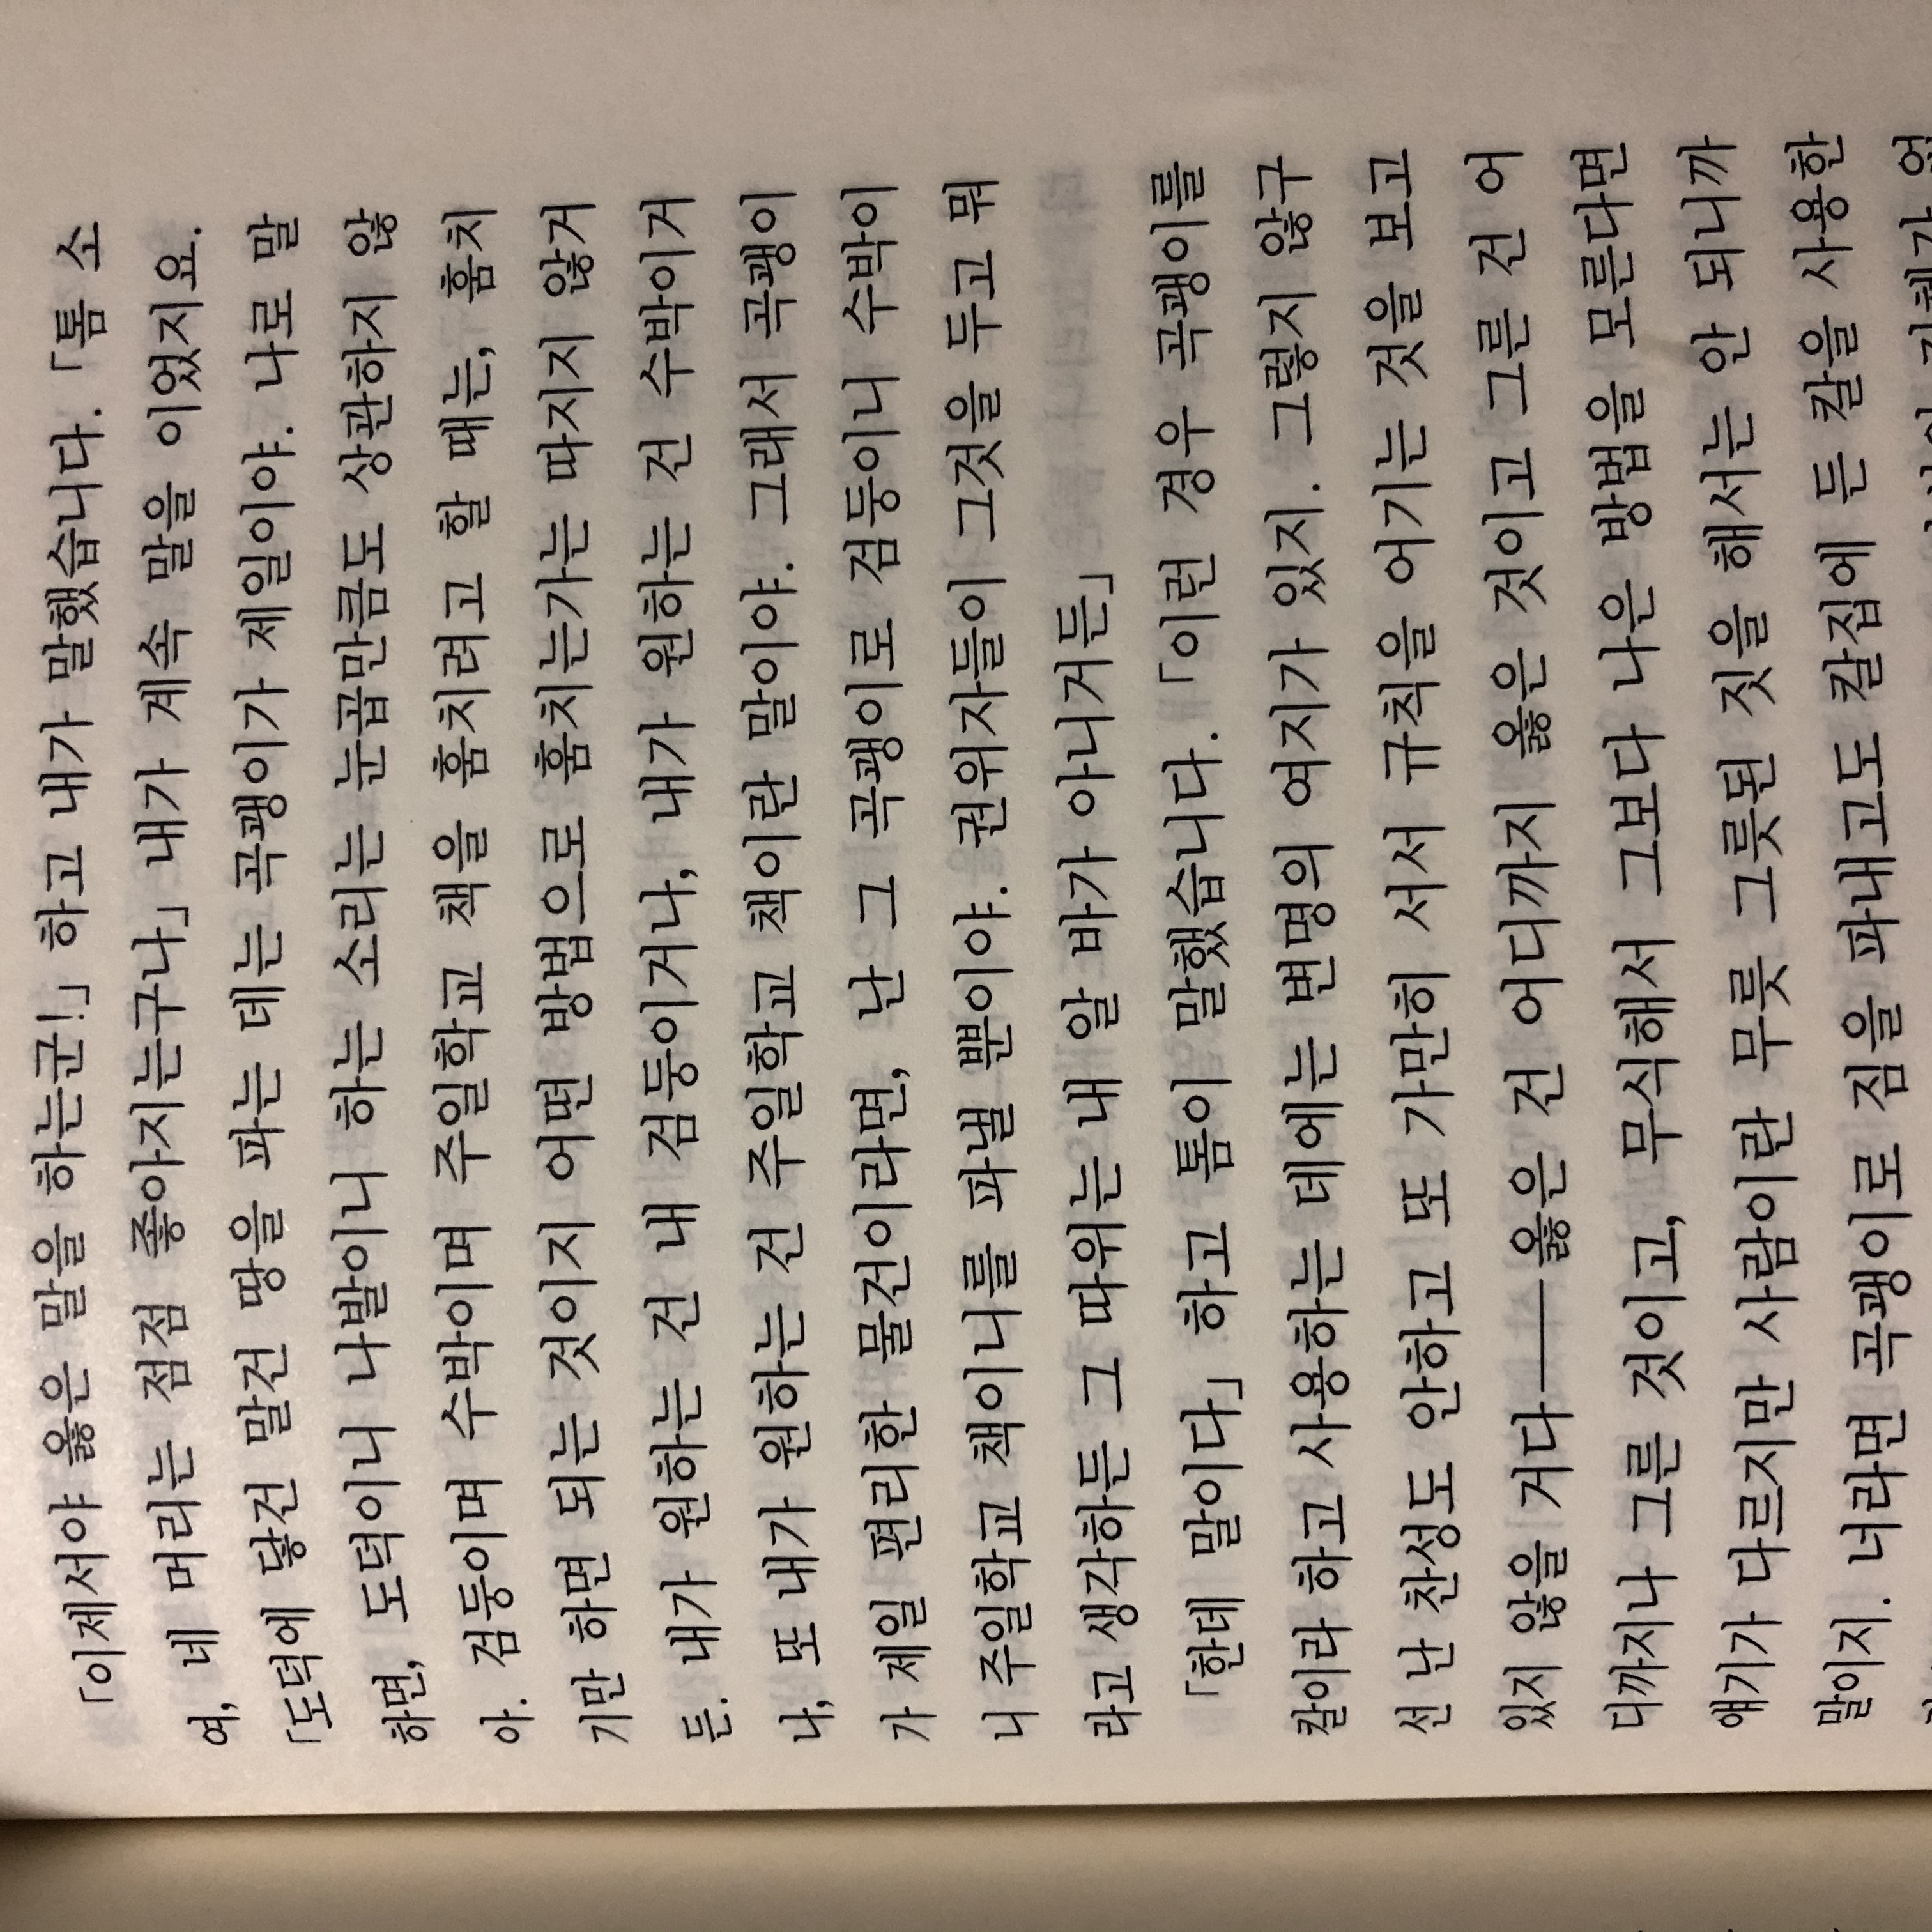 「이제서야 옳은 말을 하는군!」 하고 내가 말했습니다. 「톰 소
여, 네 머리는 점점 좋아지는구나」 내가 계속 말을 이었지요.
「도덕에 닿건 말건 땅을 파는 데는 곡괭이가 제일이야. 나로 말
하면, 도덕이니 나발이니 하는 소리는 눈꼽만큼도 상관하지 않
아. 검둥이며 수박이며 주일학교 책을 훔치려고 할 때는, 훔치
기만 하면 되는 것이지 어떤 방법으로 훔치는가는 따지지 않거
든. 내가 원하는 건 내 검둥이거나, 내가 원하는 건 수박이거
나, 또 내가 원하는 건 주일학교 책이란 말이야. 그래서 곡괭이
가 제일 편리한 물건이라면, 난 그 곡괭이로 검둥이니 수박이
니 주일학교 책이니를 파낼 뿐이야. 권위자들이 그것을 두고 뭐
라고 생각하든 그 따위는 내 알 바가 아니거든」
「한데 말이다」 하고 톰이 말했습니다. 「이런 경우 곡괭이를
칼이라 하고 사용하는 데에는 변명의 여지가 있지. 그렇지 않구
선 난 찬성도 안하고 또 가만히 서서 규칙을 어기는 것을 보고
있지 않을 거다──옳은 건 어디까지 옳은 것이고 그른 건 어
디까지나 그른 것이고, 무식해서 그보다 나은 방법을 모른다면
얘기가 다르지만 사람이란 무릇 그릇된 짓을 해서는 안 되니까
말이지. 너라면 곡괭이로 짐을 파내고도 칼집에 든 칼을 사용한